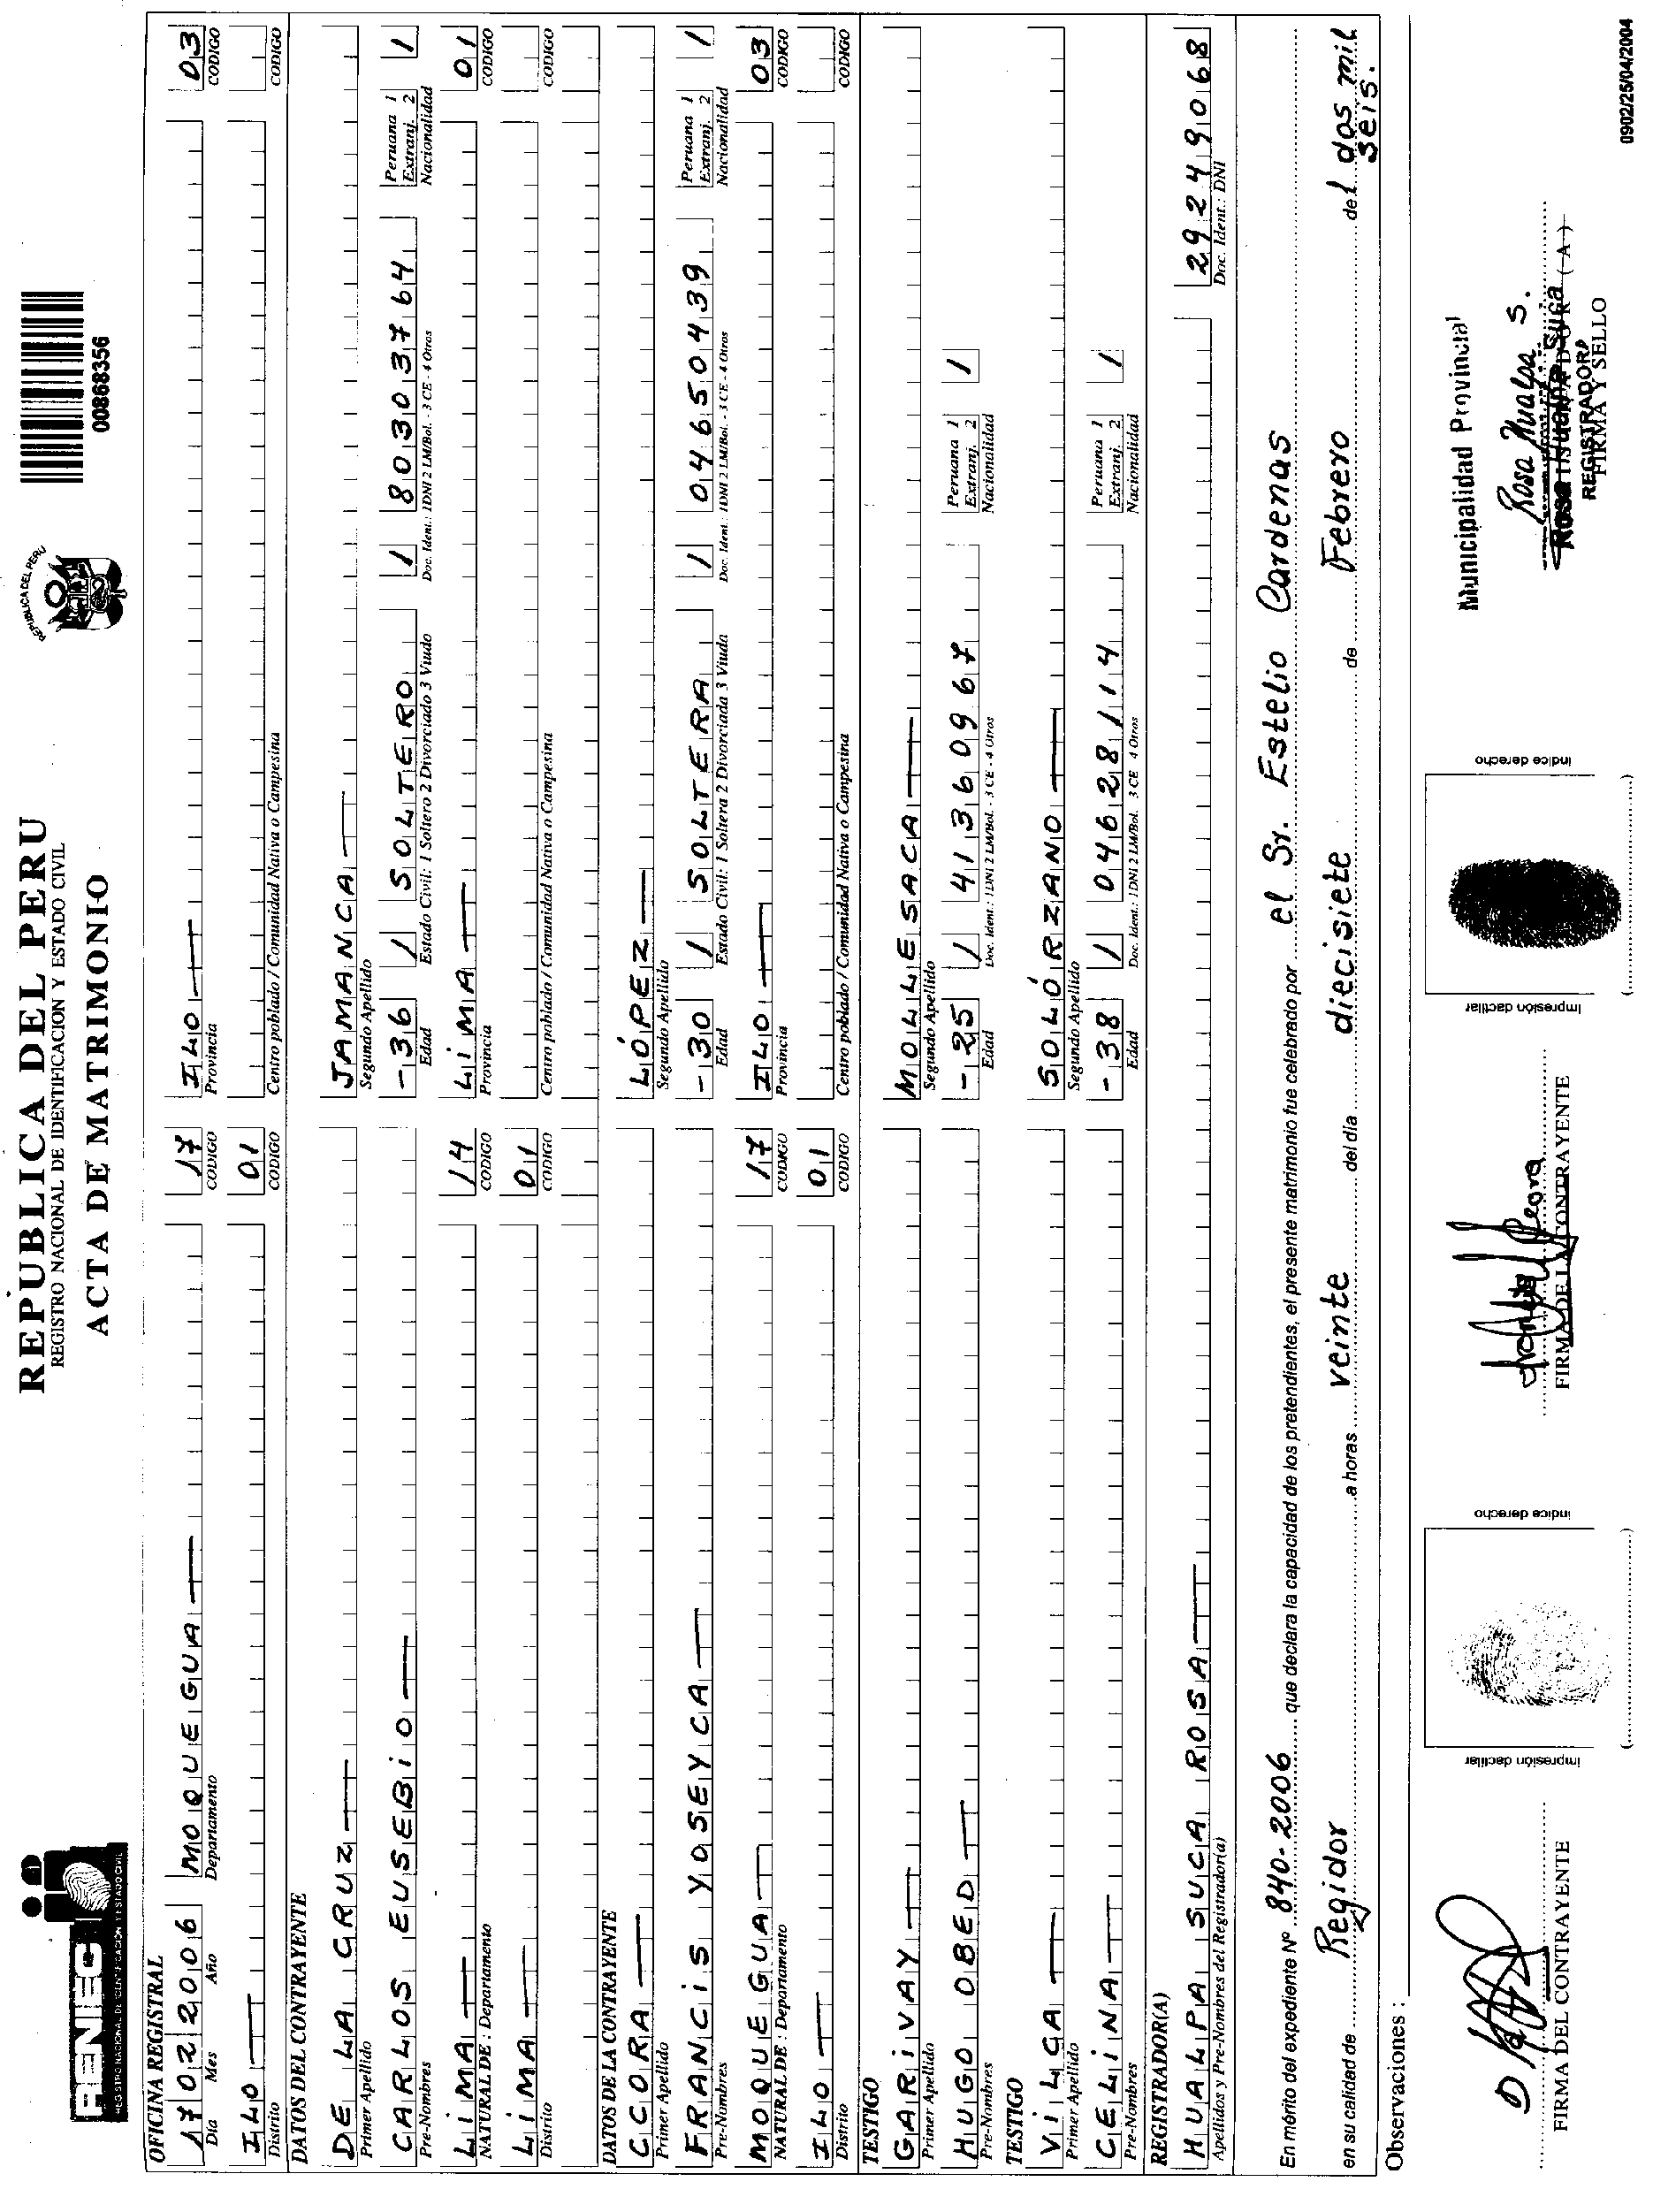 RENIEC
REGISTRO NACIONAL DE IDENTIFICACION Y ESTADO CIVIL
REPUBLICA DEL PERU
REGISTRO NACIONAL DE IDENTIFICACION Y ESTADO CIVIL
ACTA DE MATRIMONIO
REPUBLICA DEL PERU
00868356
OFICINA REGISTRAL
17 02 2006 MOQUEGUA 17 ILO 03
Dia Mes Año Departamento CODIGO Provincia CODIGO
ILO 01
Distrito CODIGO Centro poblado / Comunidad Nativa o Campesina CODIGO
DATOS DEL CONTRAYENTE
DE LA CRUZ JAMANCA
Primer Apellido Segundo Apellido
CARLOS EUSEBIO -36 1 SOLTERO 1 80303764 Peruana 1 Extranj. 2 1
Pre-Nombres Edad Estado Civil: 1 Soltero 2 Divorciado 3 Viudo Doc. Ident.: 1DNI 2 LM/Bol. - 3 CE - 4 Otros Nacionalidad
LiMA 14 LiMA 01
NATURAL DE : Departamento CODIGO Provincia CODIGO
LiMA 01
Distrito CODIGO Centro poblado / Comunidad Nativa o Campesina CODIGO
DATOS DE LA CONTRAYENTE
CCORA LÓPEZ
Primer Apellido Segundo Apellido
FRANCIS YOSEYCA -30 1 SOLTERA 1 04650439 Peruana 1 Extranj. 2 1
Pre-Nombres Edad Estado Civil: 1 Soltera 2 Divorciada 3 Viuda Doc. Ident.: 1DNI 2 LM/Bol. - 3 CE - 4 Otros Nacionalidad
MOQUEGUA 17 ILO 03
NATURAL DE : Departamento CODIGO Provincia CODIGO
ILO 01
Distrito CODIGO Centro poblado / Comunidad Nativa o Campesina CODIGO
TESTIGO
GARiVAY MOLLESACA
Primer Apellido Segundo Apellido
HUGO OBED -25 1 41360967 Peruana 1 Extranj. 2 1
Pre-Nombres Edad Doc. Ident.: 1DNI 2 LM/Bol. - 3 CE - 4 Otros Nacionalidad
TESTIGO
ViLCA SOLÓRZANO
Primer Apellido Segundo Apellido
CELiNA -38 1 04628114 Peruana 1 Extranj. 2 1
Pre-Nombres Edad Doc. Ident.: 1DNI 2 LM/Bol. 3 CE 4 Otros Nacionalidad
REGISTRADOR(A)
HUALPA SUCA ROSA 29249068
Apellidos y Pre-Nombres del Registrador(a) Doc. Ident.: DNI
En mérito del expediente Nº 840-2006 que declara la capacidad de los pretendientes, el presente matrimonio fue celebrado por el Sr. Estelio Cardenas
en su calidad de Regidor a horas veinte del día diecisiete de Febrero del dos mil seis.
Observaciones :
FIRMA DEL CONTRAYENTE
Impresión dactilar índice derecho
FIRMA DE LA CONTRAYENTE
Impresión dactilar índice derecho
Municipalidad Provincial
Rosa Hualpa S.
Rosa Hualpa Suca
REGISTRADORA
FIRMA Y SELLO
0902/25/04/2004